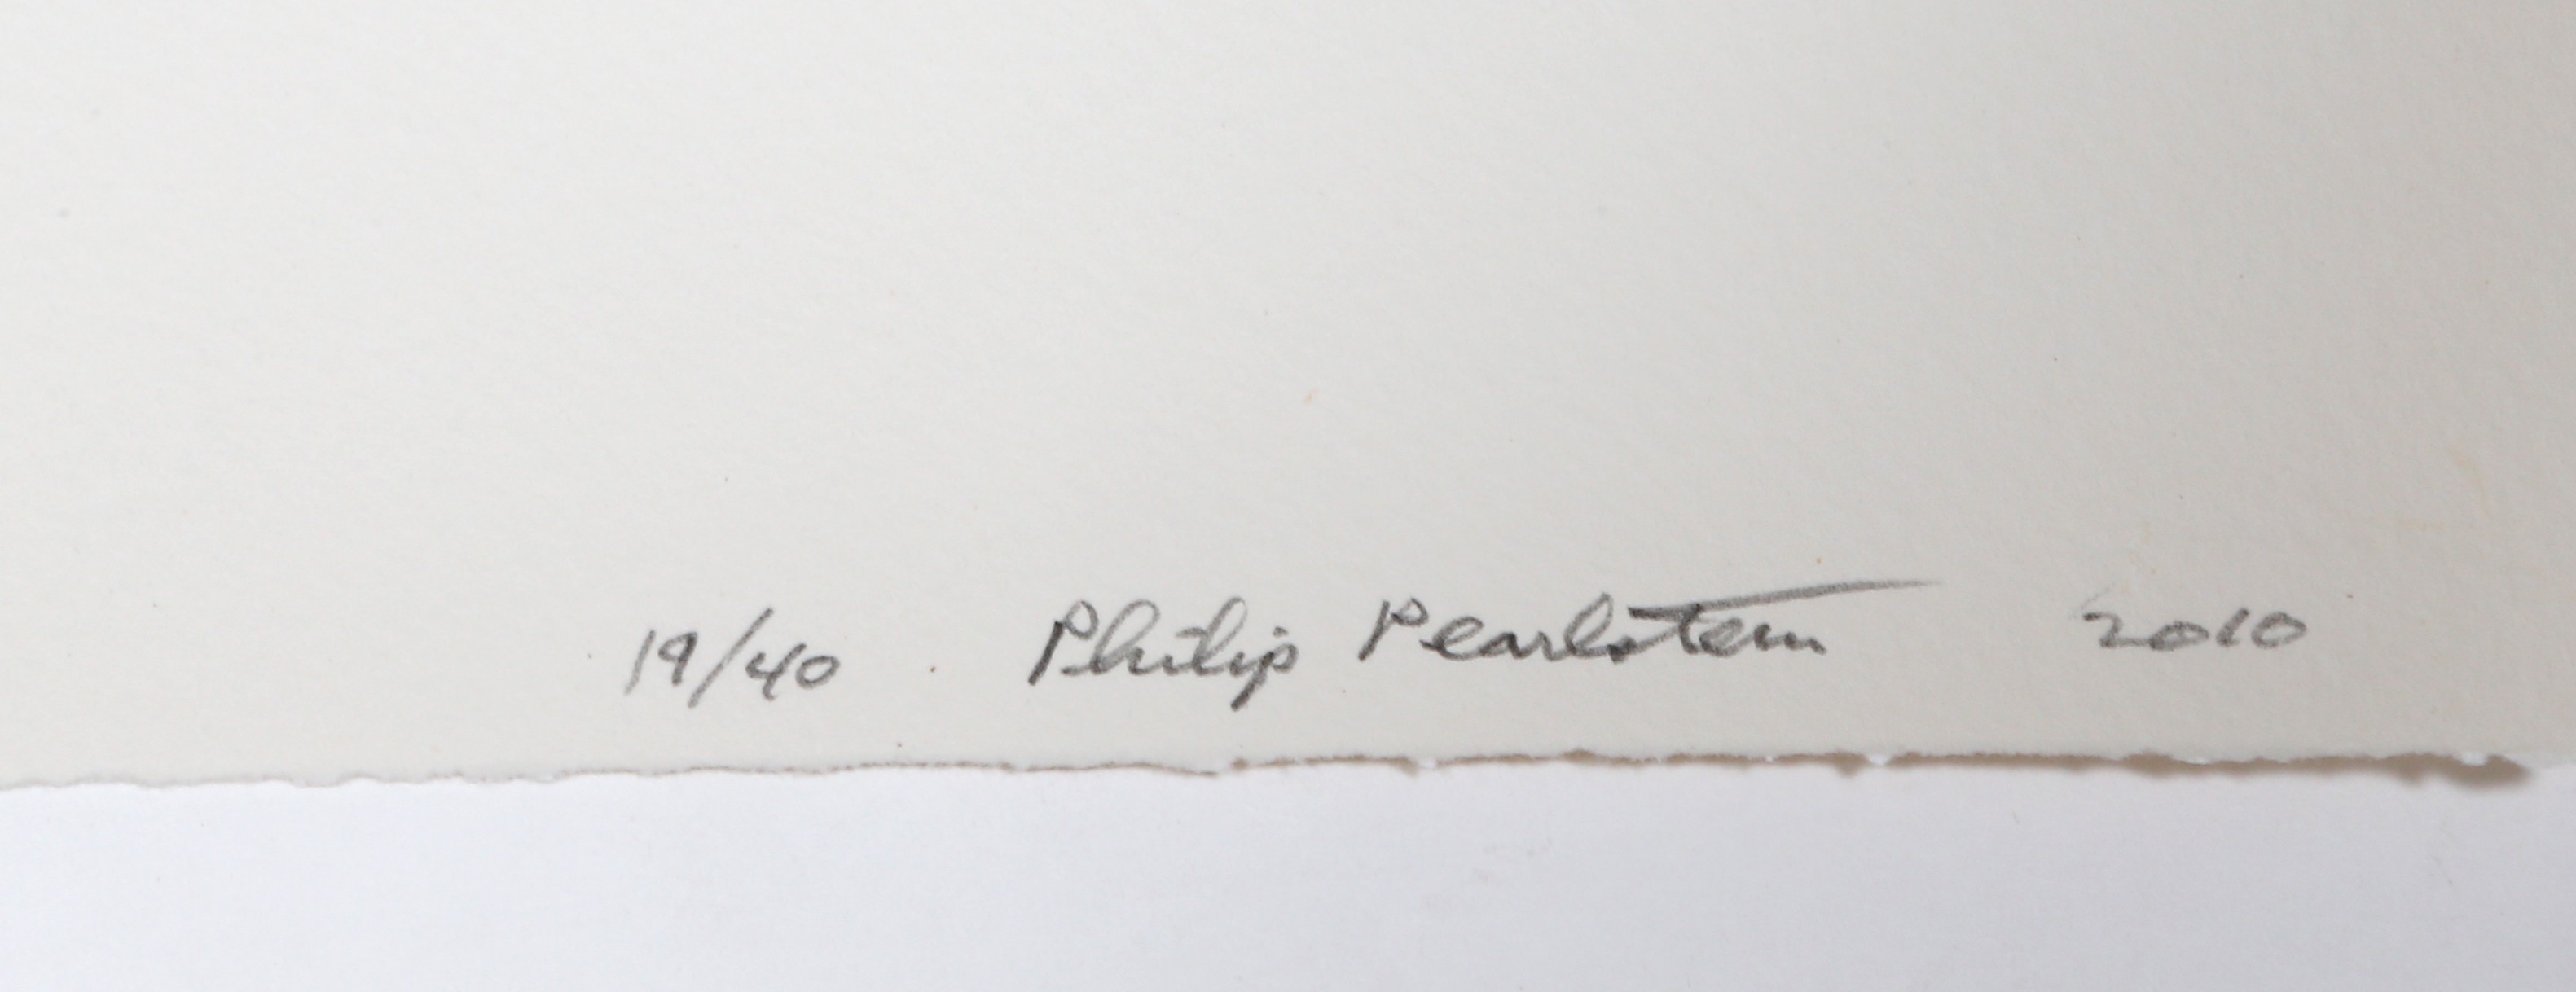 19/40 Philip Pearlstein 2010